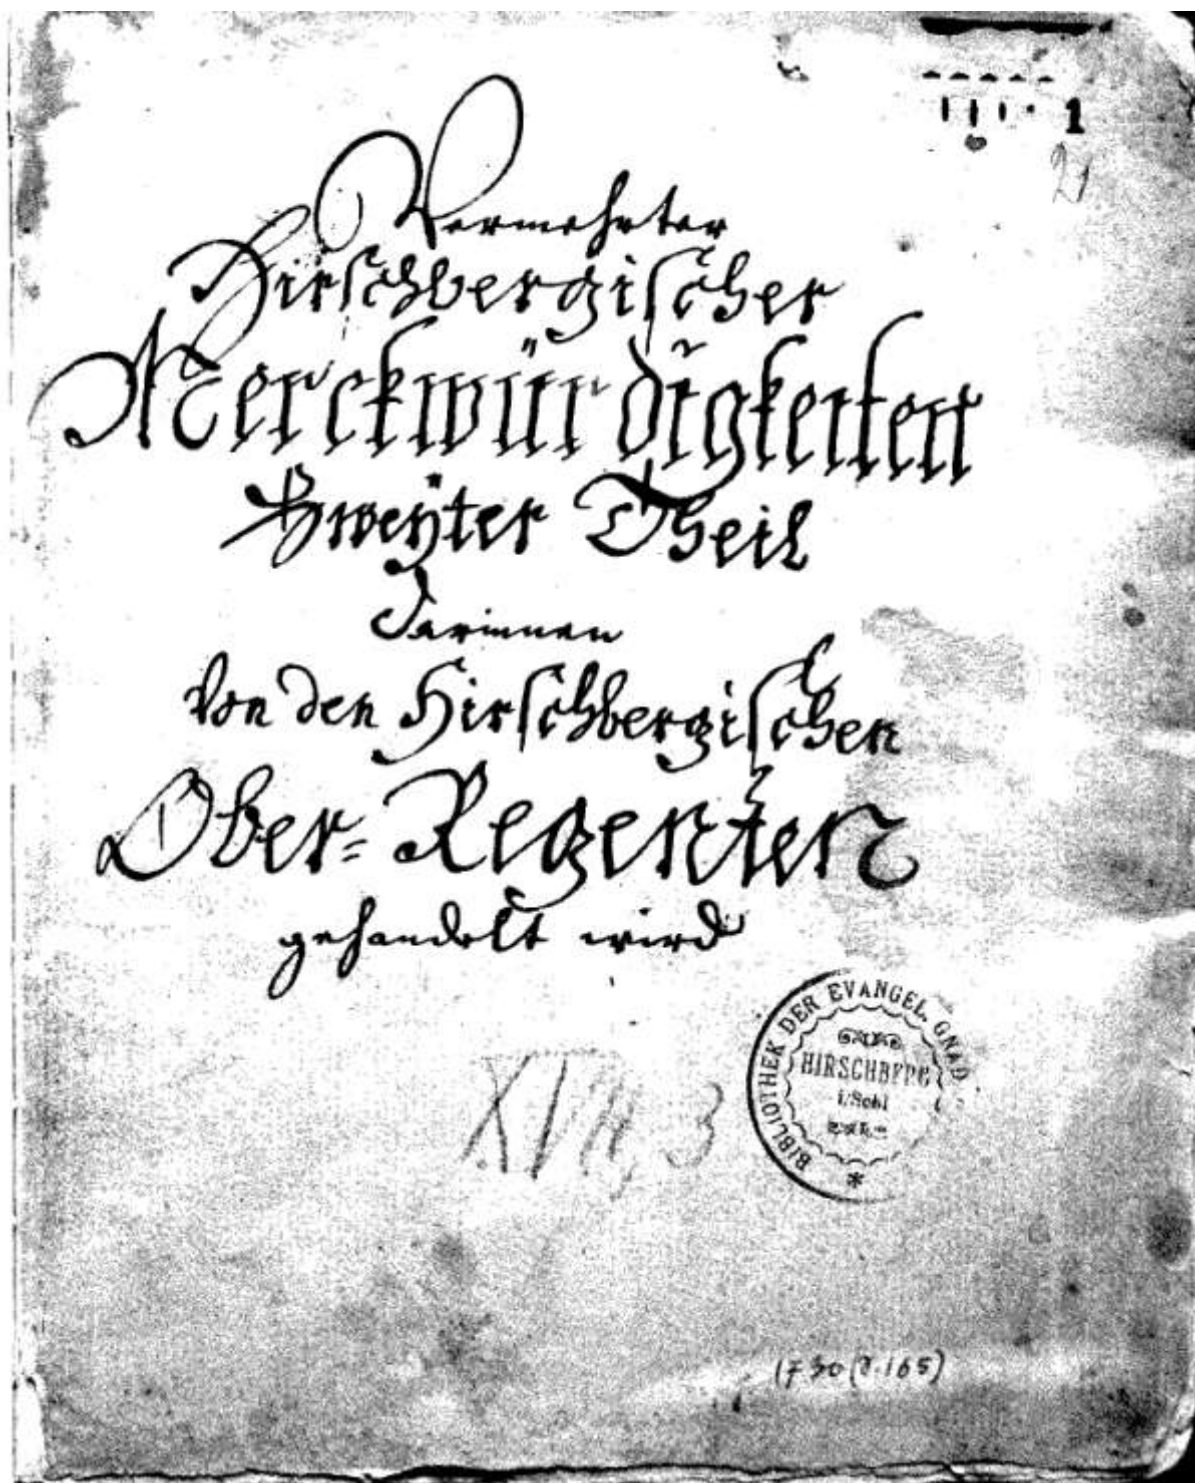 1
21
Vermehrter
Hirschbergischer
Merckwürdigkeiten
Zweÿter Theil
Darinnen
Von den Hirschbergischen
Ober= Regenten
gehandelt wird
BIBLIOTHEK DER EVANGEL. GNAD
HIRSCHBERG
i/Schl
*
3
1730 (S.165)